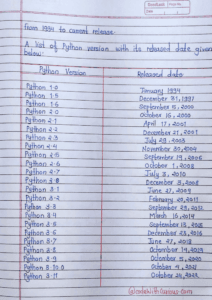 from 1994 to current release
A list of Python version with its released date given
below:
Python Version Released date
Python 1.0 January 1994
Python 1.5 December 31, 1997
Python 1.6 September 5, 2000
Python 2.0 October 16, 2000
Python 2.1 April 17, 2001
Python 2.2 December 21, 2001
Python 2.3 July 29, 2003
Python 2.4 November 30, 2004
Python 2.5 September 19, 2006
Python 2.6 October 1, 2008
Python 2.7 July 3, 2010
Python 3.0 December 3, 2008
Python 3.1 June 27, 2009
Python 3.2 February 20, 2011
Python 3.3 September 29, 2012
Python 3.4 March 16, 2014
Python 3.5 September 13, 2015
Python 3.6 December 23, 2016
Python 3.7 June 27, 2018
Python 3.8 October 14, 2019
Python 3.9 October 5, 2020
Python 3.10.0 October 4, 2021
Python 3.11 October 24, 2022